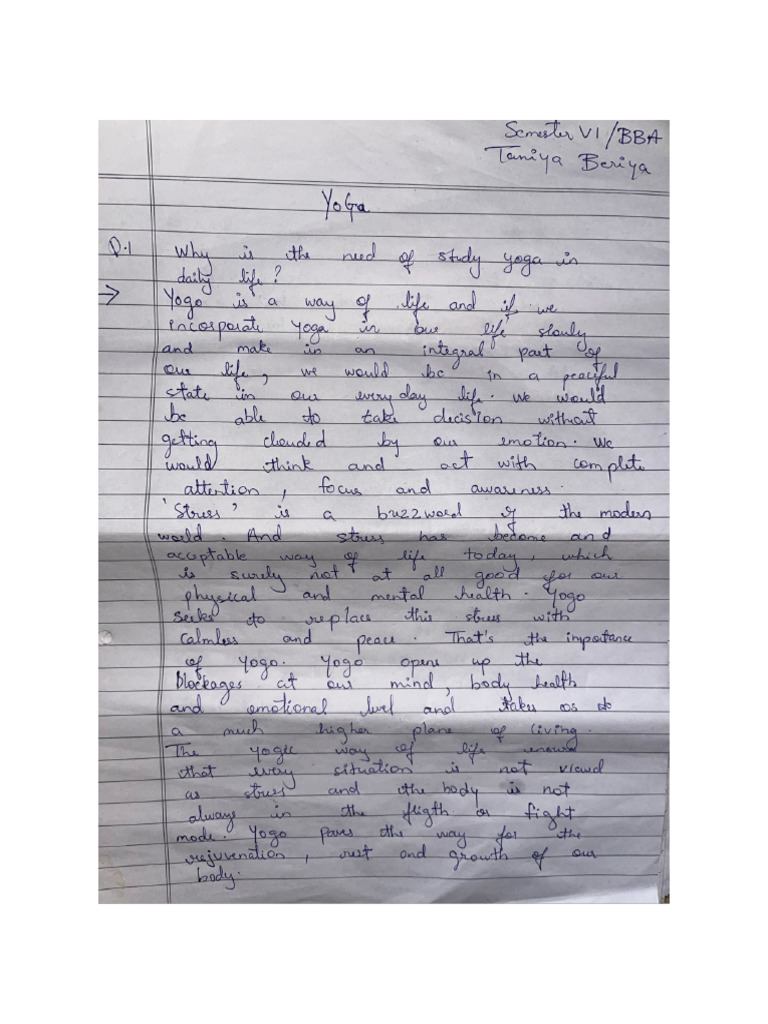 Semester VI/BBA
Taniya Beriya
YoGa
Q.1 Why is the need of study yoga in
daily life?
→ Yogo is a way of life and if we
incorporate Yoga in our life slowly
and make in an integral part of
our life, we would be in a peaciful
state in our every day life. We would
be able to take decision without
getting clouded by our emotion. We
would think and act with complete
attention, focus and awareness.
'Stress' is a buzzword of the modern
world. And stress has become and
acceptable way of life today, which
is surely not at all good for our
physical and mental health. Yogo
seeks to replace this stress with
calmless and peace. That's the importance
of Yogo. Yogo opens up the
blockages at our mind, body health
and emotional level and takes os to
a much higher plane of living.
The yogic way of life
that every situation is not viewd
as stress and the body is not
always in the fligth or fight
mode. Yogo paves the way for the
rejuvenation, rest and growth of our
body.